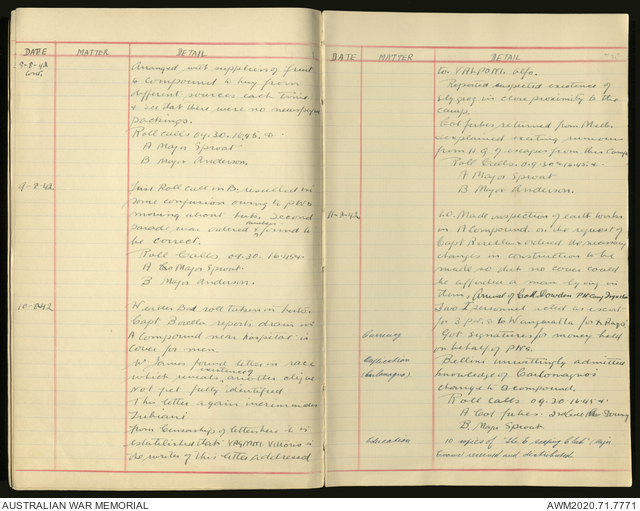 DATE MATTER DETAIL
8-8-42 Arranged with suppliers of fruit
Cont. to compound to buy from
different sources each time
& see that there were no newspaper
packings.
Roll calls 09.30. 16.45.
A Major Sprout
B Major Anderson.
9-8-42 First Roll call in B. resulted in
some confusion owing to PWs
moving about huts. Second
parade was ordered & numbers found to
be correct.
Roll Calls 09.30. 16.45
A Major Sprout
B Major Anderson.
10-8-42 Roll taken in huts.
Capt Borella reports drain in
A Compound near hospital is
cover for men.
Lt James found letter in
which reveals another
Not yet fully identified
This letter again incriminates
Zubiani
from Censorship of letters here it is
established that VAGPAME Vittorio is
the writer of this letter addressed
DATE MATTER DETAIL
to VALPONI
Reported suspected existence of
sly grog in close proximity to the
camp.
Col Jubes returned from Melb.
explained existing rumours
from HQ of escapes from this Camp
Roll Calls 09.30 16.45.
A Major Sprout
B Major Anderson.
I.O. Made inspection of earth works
in A Compound on the request of
Capt Borella
changes in construction to be
made so that no cover could
be afforded a man lying in
them. Arrival of Col. Dowden PW Camp Inspector
Two I personnel acted as escort
for 3 PWs to Wangaratta for X Rays
Currency Got signatures for money held
on behalf of PWs.
Bellini unwittingly admitted
(Carlomagno) knowledge of Carlomagno's
change to B compound.
Roll calls 09.30 16.45
A Col Jubes.
B. Major Sprout.
Education 10 copies of
received and distributed
AUSTRALIAN WAR MEMORIAL
AWM2020.71.7771